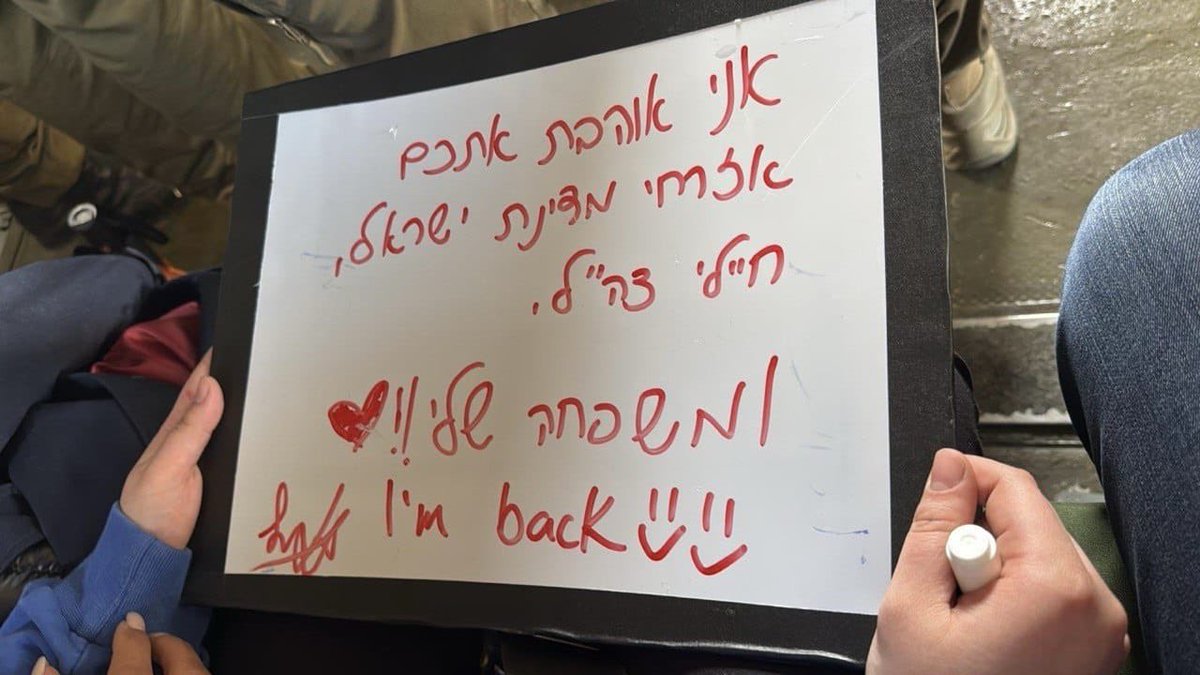 אני אוהבת אתכם
אזרחי מדינת ישראל,
חיילי צה"ל.
ומשפחה שלי!!
I'm back